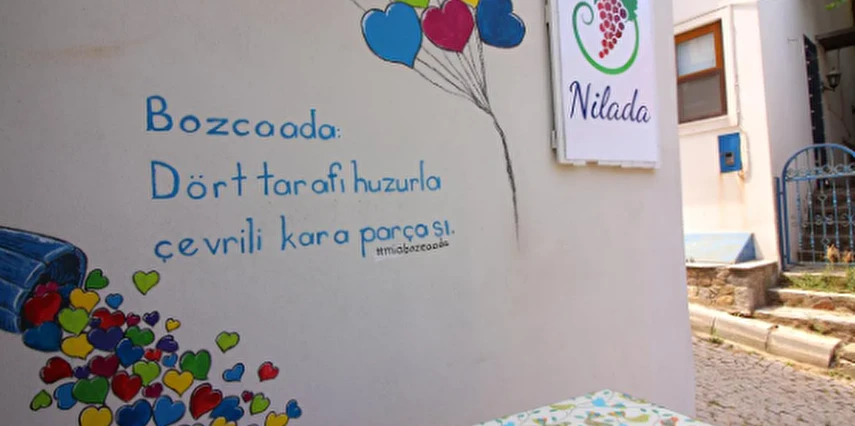 Bozcaada:
Dört tarafı huzurla
çevrili kara parçası.
#miabozcaada
Nilada